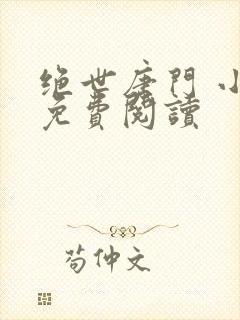 绝世唐门 小
免費閱讀
苟仲文